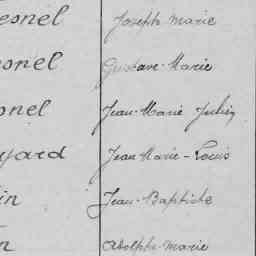 esnel Joseph Marie
esnel Gustave-Marie
onel Jean-Marie Julien
yard Jean Marie-Louis
in Jean-Baptiste
n Adolphe-Marie